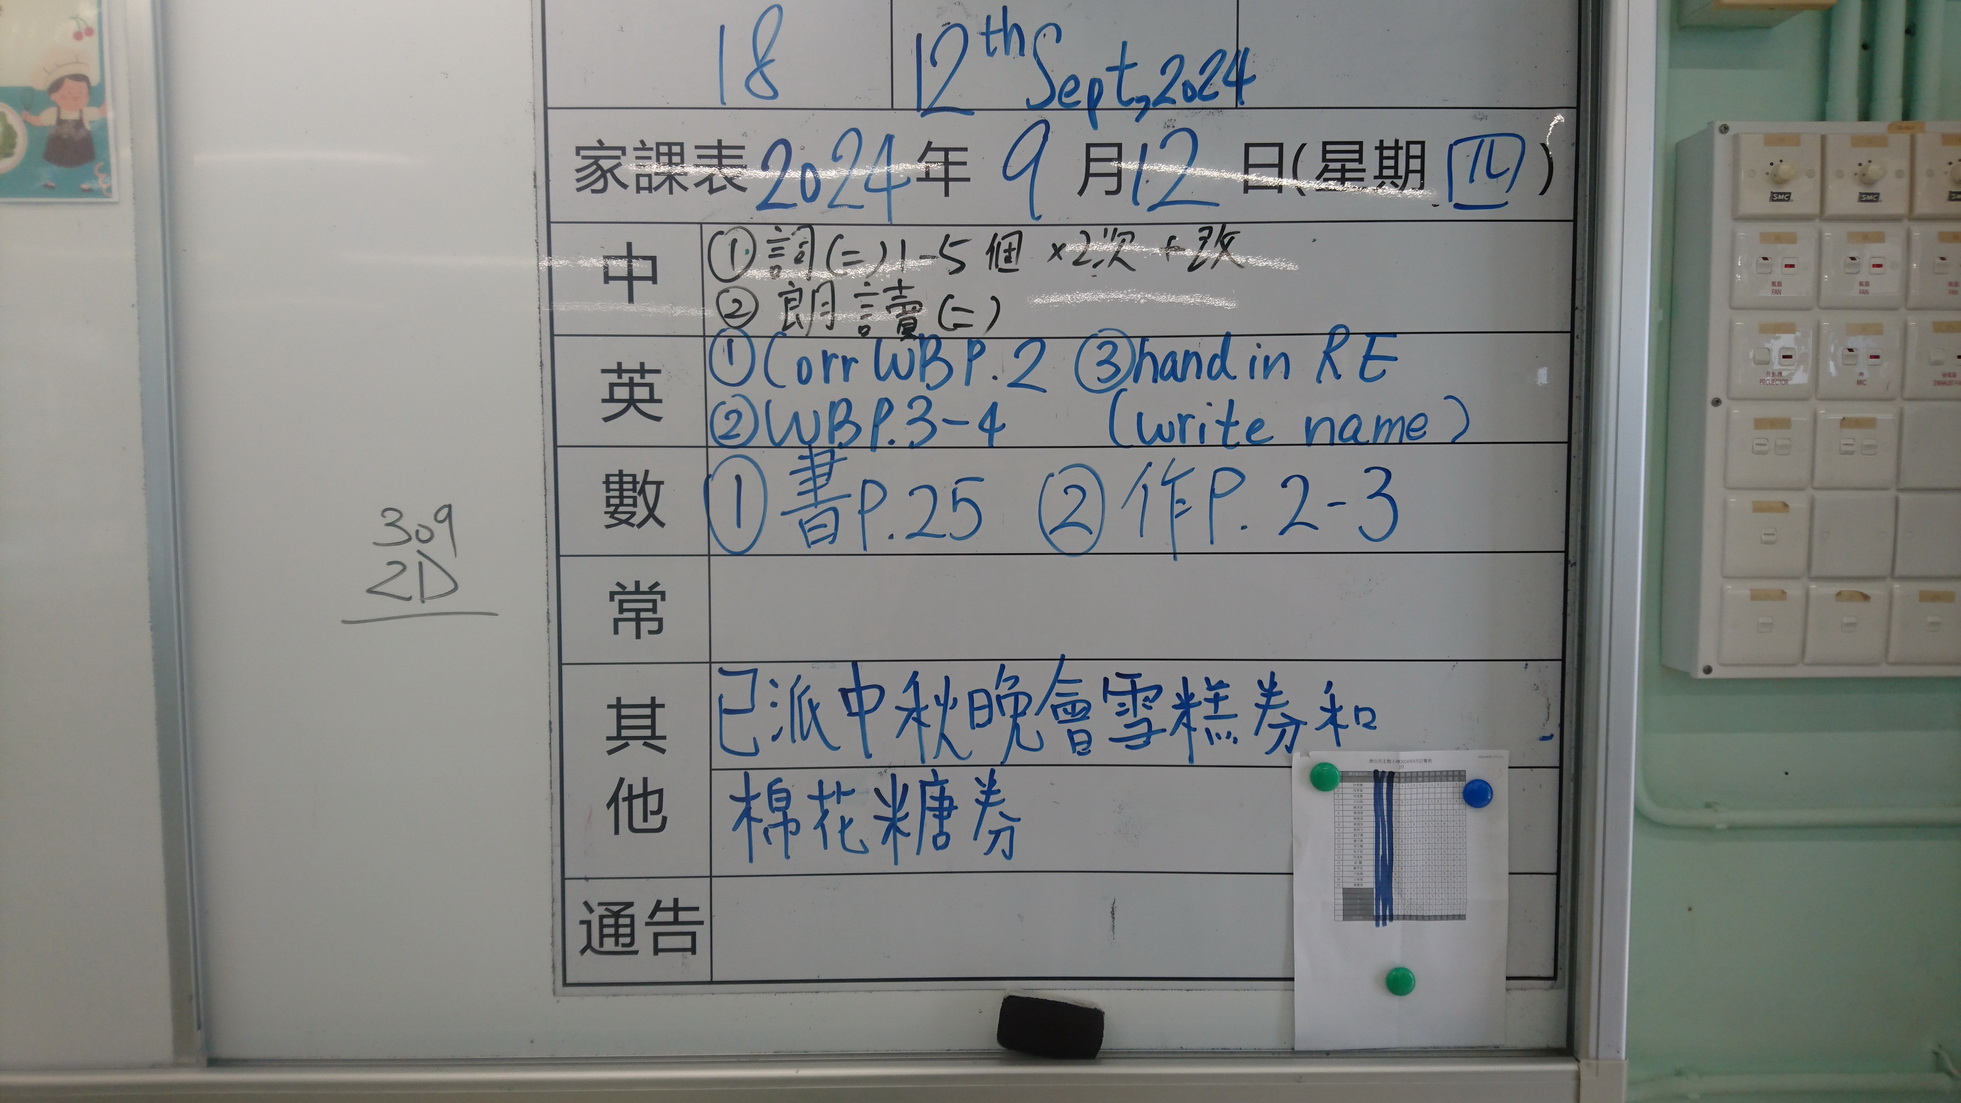 18
12th Sept, 2024
家課表 2024年 9月12日(星期四)
中
①詞(二)1-5個 ×2次 + 改
②朗讀(二)
英
①Corr WB P.2 ③hand in RE
②WB P.3-4 (write name)
數
①書P.25 ②作P. 2-3
常
其他
已派中秋晚會雪糕券和
棉花糖券
通告
309
2D
SMC
SMC
SMC
FAN
FAN